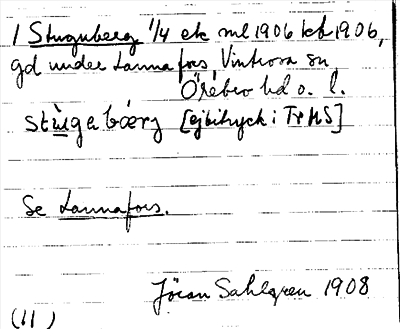 1 Stuguberg 1/4 ek ml 1906 kb 1906,
gd under Lannafors, Vintrosa sn
Örebro hd o. l.
stùgabærg [ej bitryck i TrHS]
Se Lannafors.
Jöran Sahlgren 1908
(11)